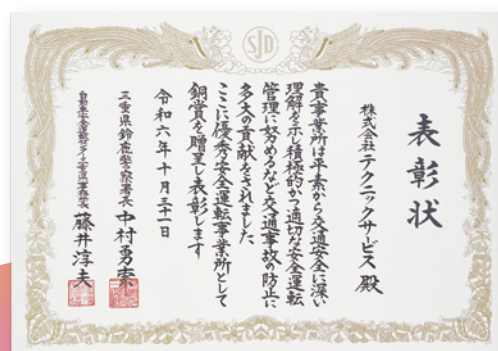 SJD
表彰状
株式会社テクニックサービス殿
貴事業所は平素から交通安全に深い
理解を示し積極的かつ適切な安全運転
管理に努めるなど交通事故の防止に
多大の貢献をされました
ここに優秀安全運転事業所として
銅賞を贈呈し表彰します
令和六年十月三十一日
三重県鈴鹿警察署長 中村勇索
自動車安全運転センター三重県事務所長 藤井淳夫